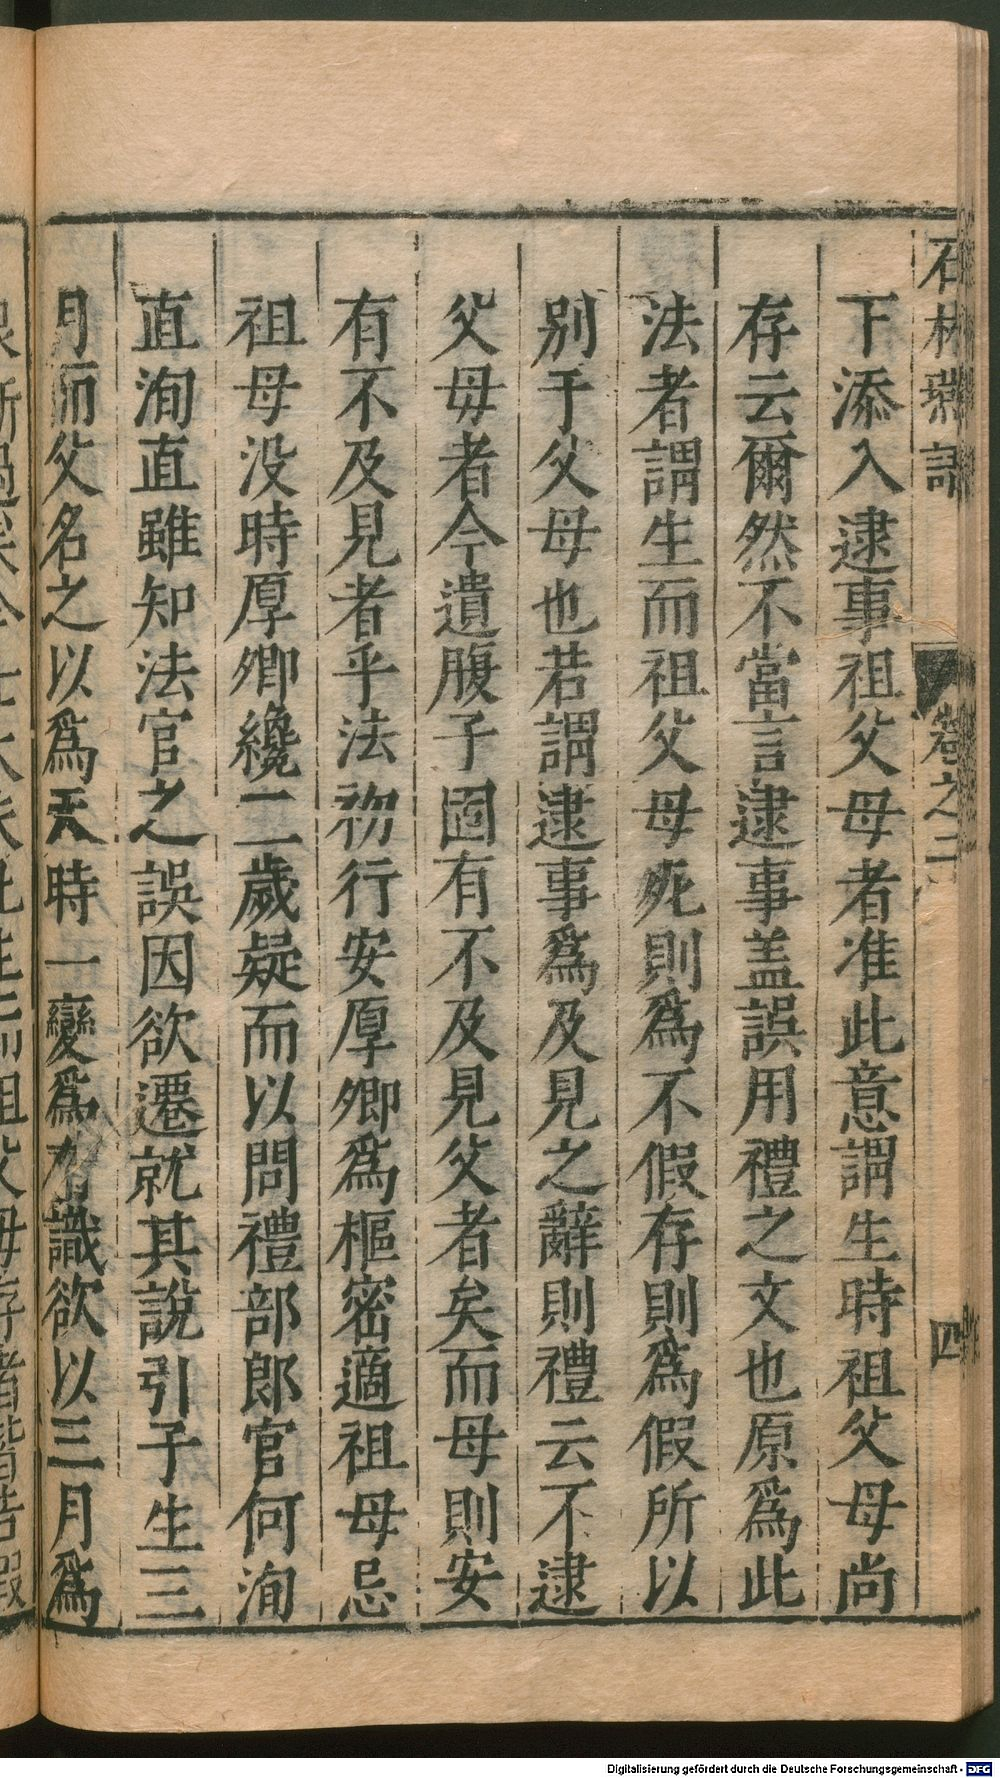 石林燕語
卷之二
四
下添入逮事祖父母者准此意謂生時祖父母尚
存云爾然不當言逮事盖誤用禮之文也原爲此
法者謂生而祖父母死則爲不假存則爲假所以
别于父母也若謂逮事爲及見之辭則禮云不逮
父母者今遺腹子固有不及見父者矣而母則安
有不及見者乎法初行安厚卿爲樞密適祖母忌
祖母没時厚卿纔二歲疑而以問禮部郎官何洵
直洵直雖知法官之誤因欲遷就其說引子生三
月而父名之以爲天時一變爲有識欲以三月爲
Digitalisierung gefördert durch die Deutsche Forschungsgemeinschaft - DFG